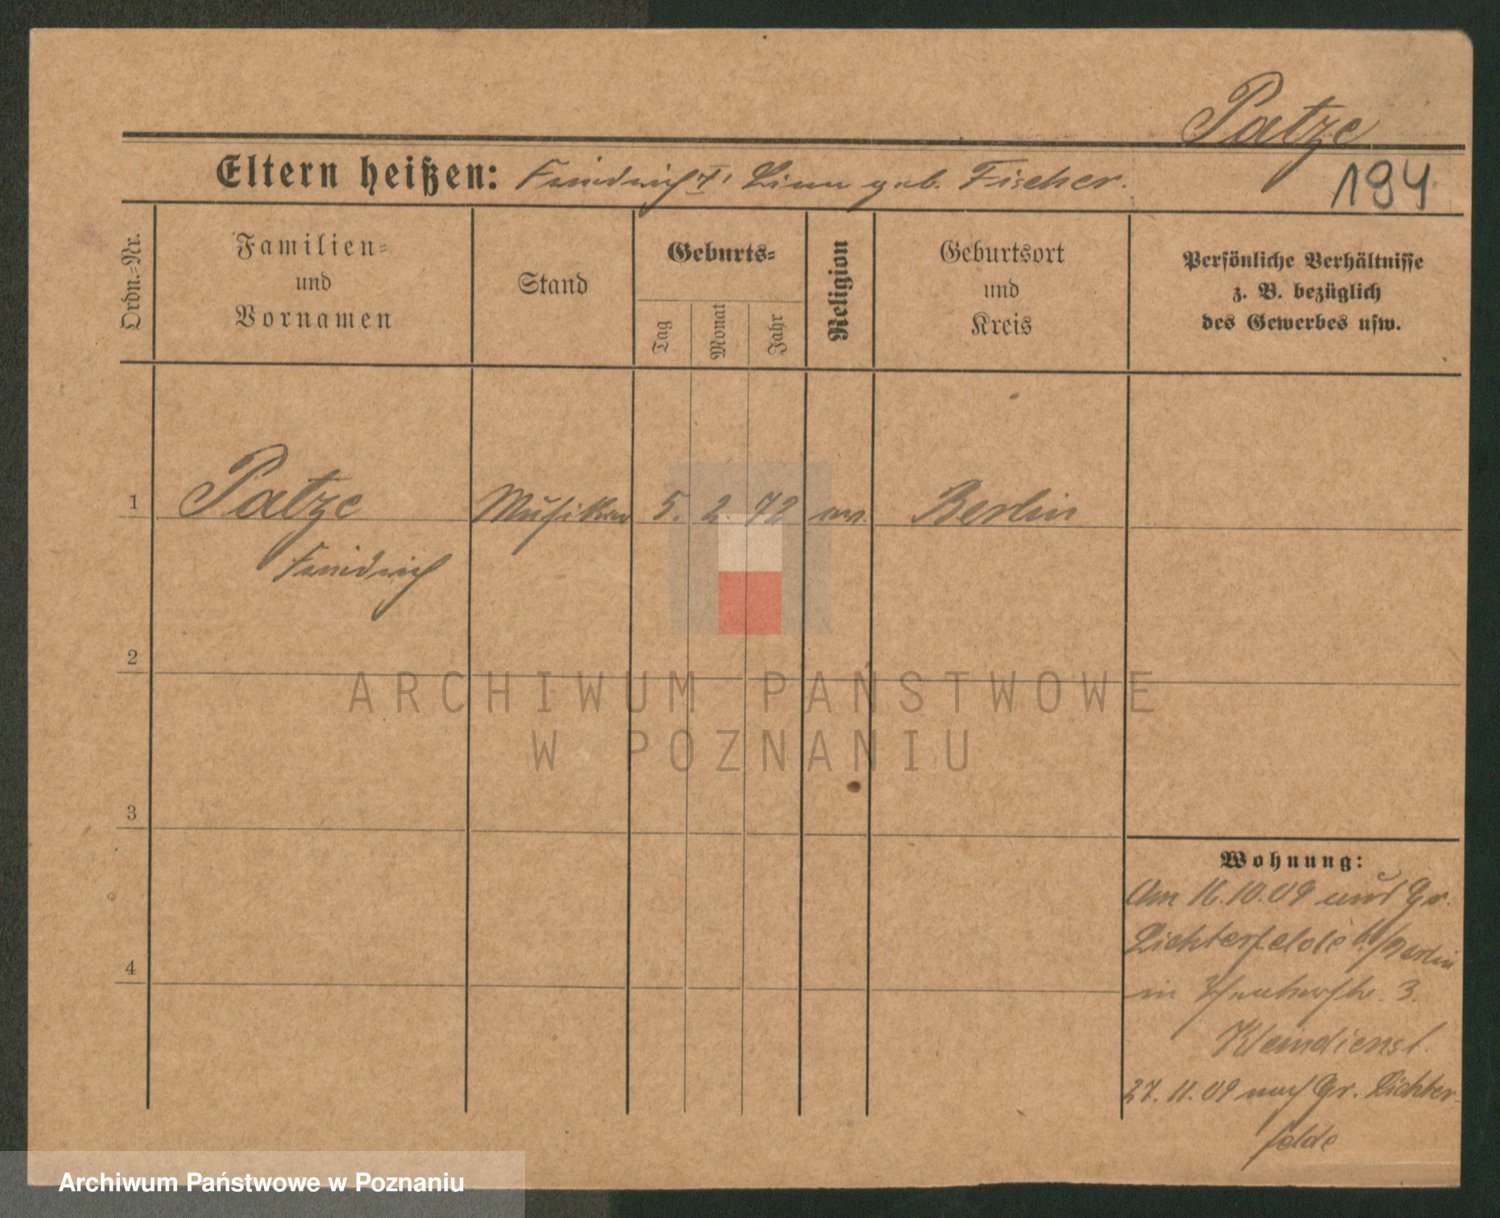 Patze
Eltern heißen: Friedrich †, Linn geb. Fischer.
194
Ordn.-Nr.
Familien- und Vornamen
Stand
Geburts-
Tag
Monat
Jahr
Religion
Geburtsort und Kreis
Persönliche Verhältnisse
z. B. bezüglich
des Gewerbes usw.
1 Patze Musiker 5. 2. 72 ev. Berlin
Friedrich
2
ARCHIWUM PAŃSTWOWE
W POZNANIU
3
Wohnung:
Am 16.10.09 aus Gr.
Lichterfelde b/Berlin
in 3.
Kleindienst.
4
27.11.09 nach Gr. Lichter-
felde
Archiwum Państwowe w Poznaniu